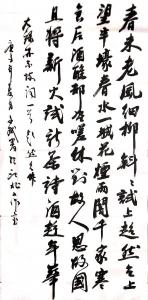 春未老風細柳斜〻試上超然台上
望半壕春水一城花煙雨闇千家寒
食后酒醒却咨嗟休對故人思故國
且將新火試新茶詩酒趁年華
蘇東坡詞一首
庚子年